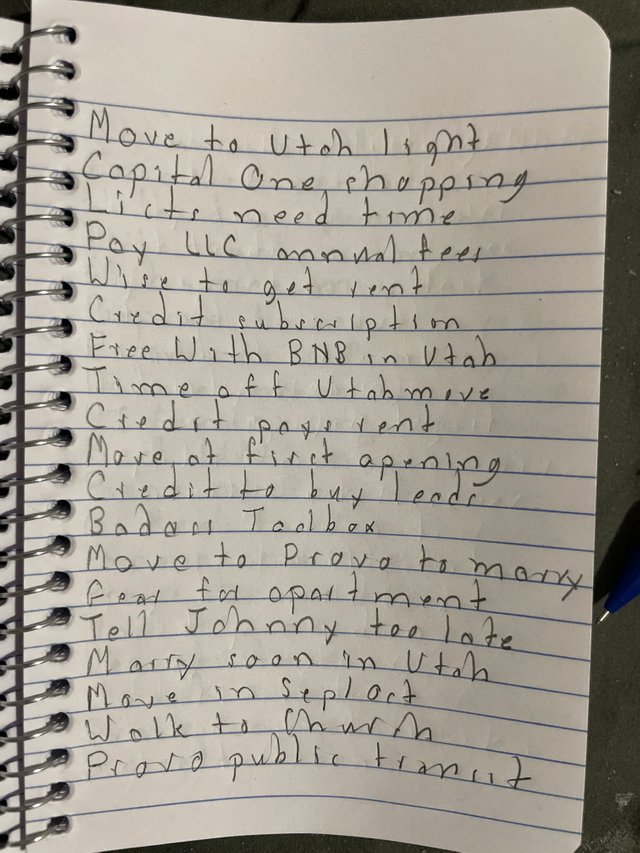 Move to Utah light
Capital One shopping
Lists need time
Pay LLC annual fees
Wise to get rent
Credit subscription
Free With BNB in Utah
Time off Utah move
Credit pays rent
Move at first opening
Credit to buy leads
Badass Toolbox
Move to Provo to marry
Fear for apartment
Tell Johnny too late
Marry soon in Utah
Move in Sep/Oct
Walk to Church
Provo public transit